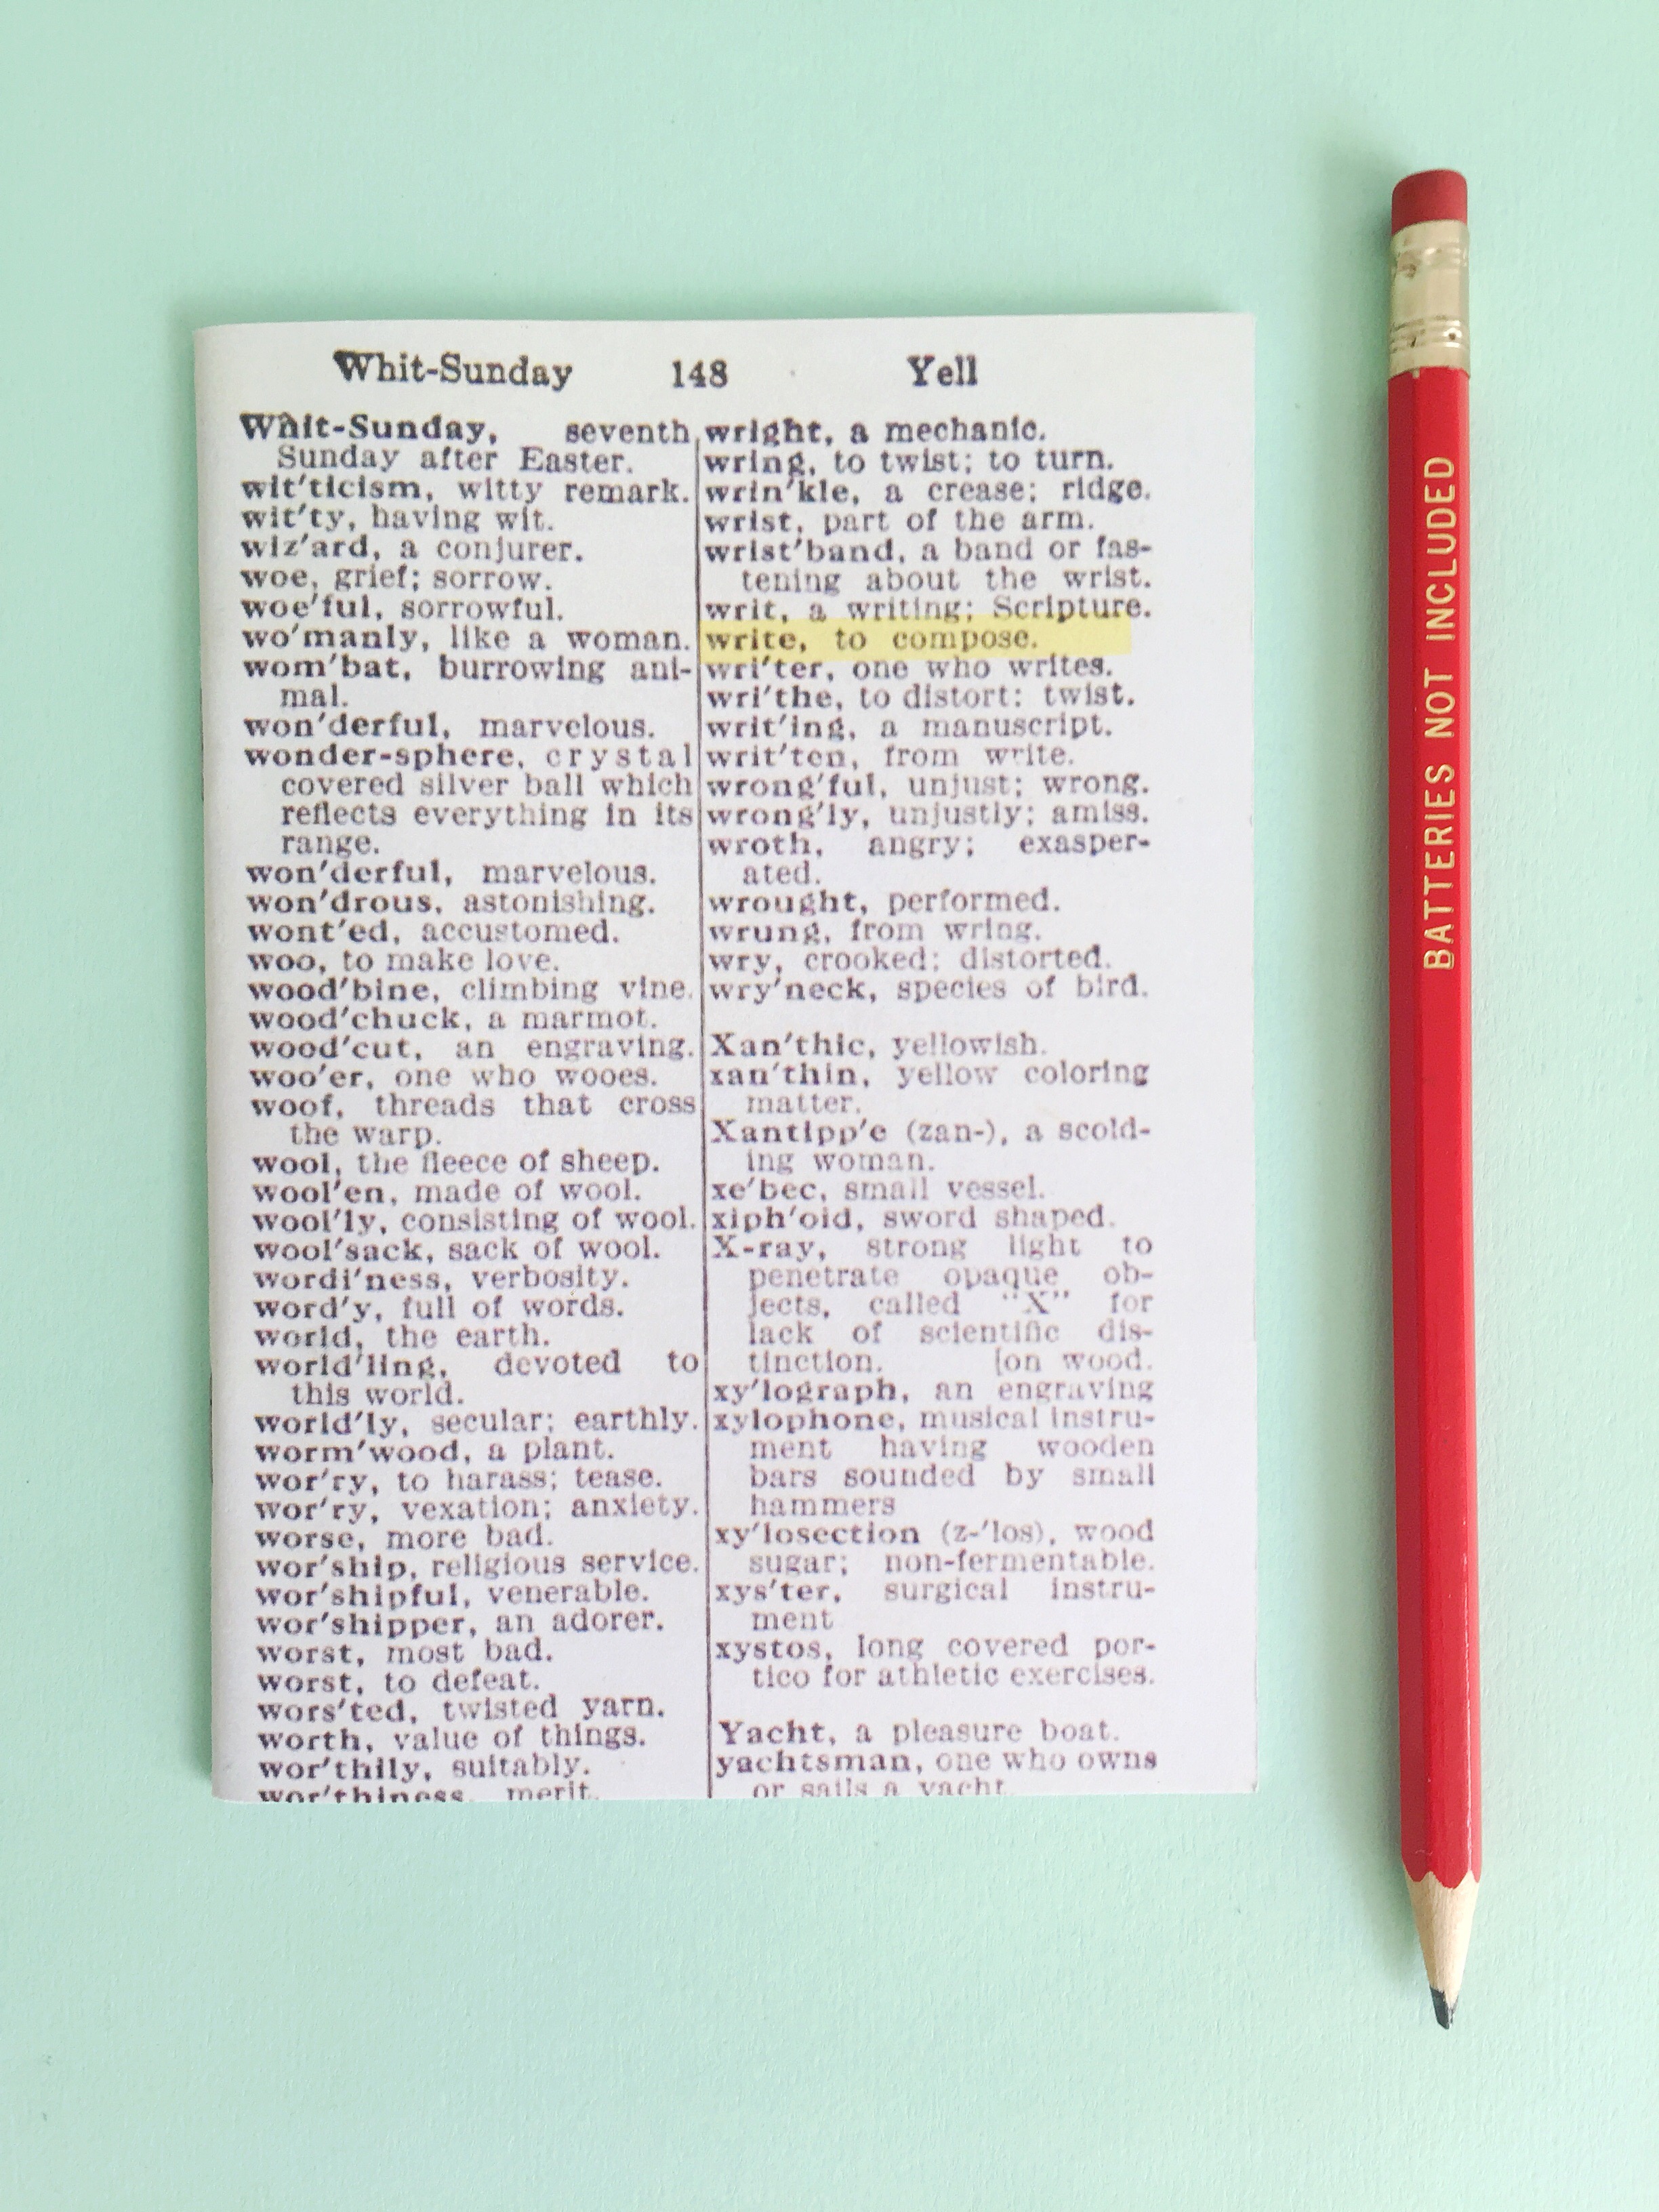 Whit-Sunday 148 Yell
Whit-Sunday, seventh
Sunday after Easter.
wit'ticism, witty remark.
wit'ty, having wit.
wiz'ard, a conjurer.
woe, grief; sorrow.
woe'ful, sorrowful.
wo'manly, like a woman.
wom'bat, burrowing ani-
mal.
won'derful, marvelous.
wonder-sphere, crystal
covered silver ball which
reflects everything in its
range.
won'derful, marvelous.
won'drous, astonishing.
wont'ed, accustomed.
woo, to make love.
wood'bine, climbing vine.
wood'chuck, a marmot.
wood'cut, an engraving.
woo'er, one who wooes.
woof, threads that cross
the warp.
wool, the fleece of sheep.
wool'en, made of wool.
wool'ly, consisting of wool.
wool'sack, sack of wool.
wordi'ness, verbosity.
word'y, full of words.
world, the earth.
world'ling, devoted to
this world.
world'ly, secular; earthly.
worm'wood, a plant.
wor'ry, to harass; tease.
wor'ry, vexation; anxiety.
worse, more bad.
wor'ship, religious service.
wor'shipful, venerable.
wor'shipper, an adorer.
worst, most bad.
worst, to defeat.
wors'ted, twisted yarn.
worth, value of things.
wor'thily, suitably.
wor'thiness, merit.
wright, a mechanic.
wring, to twist; to turn.
wrin'kle, a crease; ridge.
wrist, part of the arm.
wrist'band, a band or fas-
tening about the wrist.
writ, a writing; Scripture.
write, to compose.
wri'ter, one who writes.
wri'the, to distort; twist.
writ'ing, a manuscript.
writ'ten, from write.
wrong'ful, unjust; wrong.
wrong'ly, unjustly; amiss.
wroth, angry; exasper-
ated.
wrought, performed.
wrung, from wring.
wry, crooked; distorted.
wry'neck, species of bird.
Xan'thic, yellowish.
xan'thin, yellow coloring
matter.
Xantipp'e (zan-), a scold-
ing woman.
xe'bec, small vessel.
xiph'oid, sword shaped.
X-ray, strong light to
penetrate opaque ob-
jects, called "X" for
lack of scientific dis-
tinction. [on wood.
xy'lograph, an engraving
xylophone, musical instru-
ment having wooden
bars sounded by small
hammers
xy'losection (z-'los), wood
sugar; non-fermentable.
xys'ter, surgical instru-
ment
xystos, long covered por-
tico for athletic exercises.
Yacht, a pleasure boat.
yachtsman, one who owns
or sails a yacht
BATTERIES NOT INCLUDED